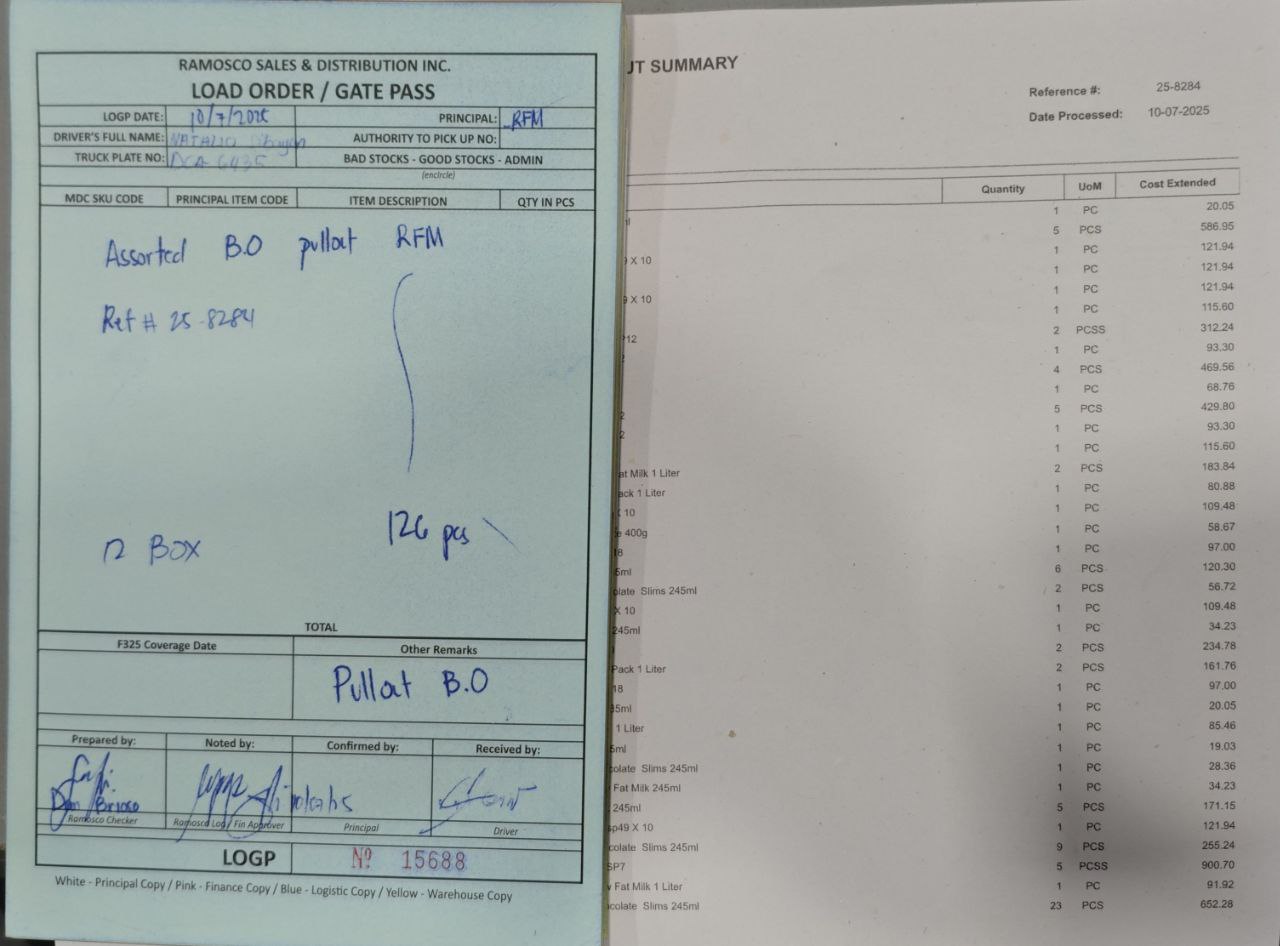 RAMOSCO SALES & DISTRIBUTION INC.
LOAD ORDER / GATE PASS
LOGP DATE: 10/7/2025 PRINCIPAL: RFM
DRIVER'S FULL NAME: NATALIO AUTHORITY TO PICK UP NO:
TRUCK PLATE NO: DCA 6435 BAD STOCKS - GOOD STOCKS - ADMIN
(encircle)
MDC SKU CODE PRINCIPAL ITEM CODE ITEM DESCRIPTION QTY IN PCS
Assorted B.O pullout RFM
Ref # 25-8284
126 pcs
12 BOX
TOTAL
F325 Coverage Date Other Remarks
Pullout B.O
Prepared by: Noted by: Confirmed by: Received by:
Dan Brioso
Ramosco Checker Ramosco Log / Fin Approver Principal Driver
LOGP Nº 15688
White - Principal Copy / Pink - Finance Copy / Blue - Logistic Copy / Yellow - Warehouse Copy
UT SUMMARY
Reference #: 25-8284
Date Processed: 10-07-2025
Quantity UoM Cost Extended
1 PC 20.05
5 PCS 586.95
X 10 1 PC 121.94
1 PC 121.94
X 10 1 PC 121.94
1 PC 115.60
12 2 PCSS 312.24
1 PC 93.30
4 PCS 469.56
1 PC 68.76
2 5 PCS 429.80
2 1 PC 93.30
1 PC 115.60
at Milk 1 Liter 2 PCS 183.84
ack 1 Liter 1 PC 80.88
X 10 1 PC 109.48
e 400g 1 PC 58.67
18 1 PC 97.00
5ml 6 PCS 120.30
olate Slims 245ml 2 PCS 56.72
X 10 1 PC 109.48
245ml 1 PC 34.23
2 PCS 234.78
Pack 1 Liter 2 PCS 161.76
18 1 PC 97.00
35ml 1 PC 20.05
1 Liter 1 PC 85.46
5ml 1 PC 19.03
colate Slims 245ml 1 PC 28.36
Fat Milk 245ml 1 PC 34.23
245ml 5 PCS 171.15
sp49 X 10 1 PC 121.94
colate Slims 245ml 9 PCS 255.24
SP7 5 PCSS 900.70
w Fat Milk 1 Liter 1 PC 91.92
colate Slims 245ml 23 PCS 652.28